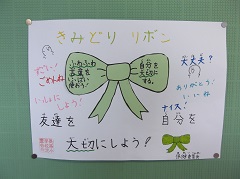 きみどり リボン
ふわふわ
言葉を
いっぱい
使おう！
自分を
大切に
する。
大丈夫？
ごめんね
いっしょに
しよう！
ありがとう！
いいね
ナイス！
友達を
自分を
大切にしよう！